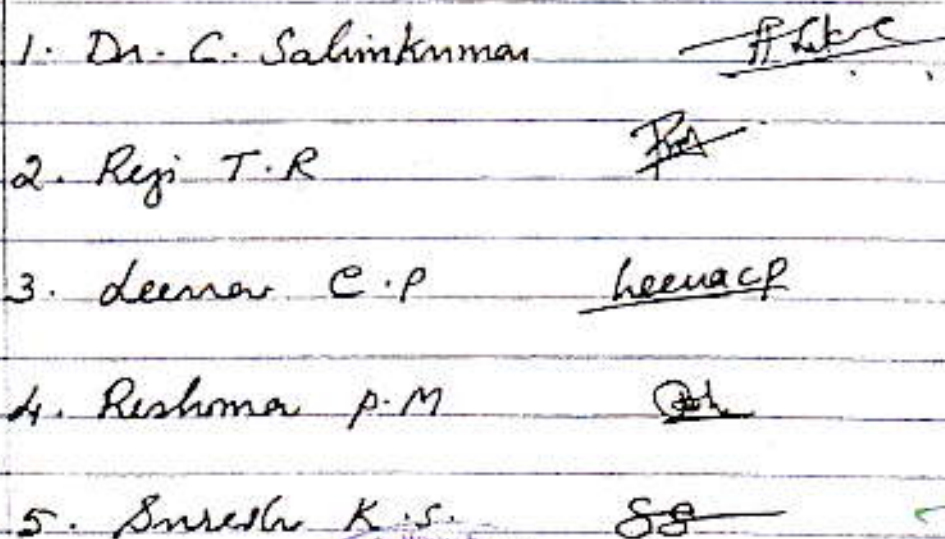 1. Dr. C. Salimkumar
2. Reji T.R
3. Leena C.P Leena CP
4. Reshma P.M
5. Suresh K.S.